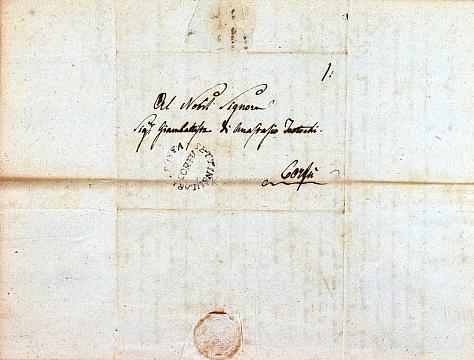 1:
Al Nobil Signore
Sigr Giambattista di Anastasio Teotochi.
Corfù